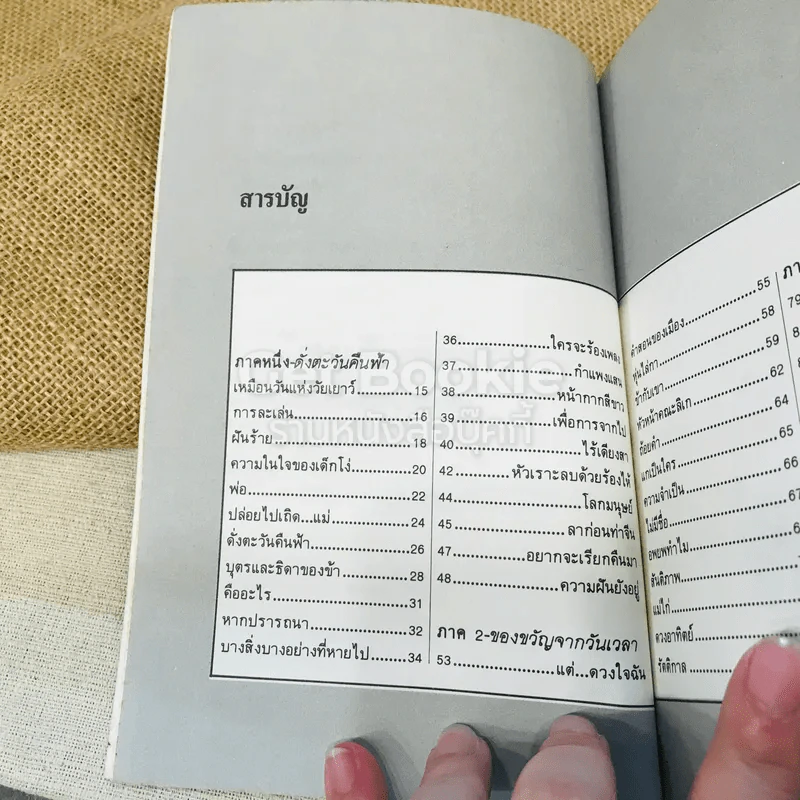 สารบัญ
ภาคหนึ่ง-ดั่งตะวันคืนฟ้า
เหมือนวันแห่งวัยเยาว์..........15
การละเล่น..........16
ฝันร้าย..........18
ความในใจของเด็กโง่..........20
พ่อ..........22
ปล่อยไปเถิด...แม่..........24
ดั่งตะวันคืนฟ้า..........26
บุตรและธิดาของข้า..........28
คืออะไร..........31
หากปรารถนา..........32
บางสิ่งบางอย่างที่หายไป..........34
36..........ใครจะร้องเพลง
37..........กำแพงแสน
38..........หน้ากากสีขาว
39..........เพื่อการจากไป
40..........ไร้เดียงสา
42..........หัวเราะลบด้วยร้องไห้
44..........โลกมนุษย์
45..........ลาก่อนท่าจีน
47..........อยากจะเรียกคืนมา
48..........ความฝันยังอยู่
ภาค 2-ของขวัญจากวันเวลา
53..........แต่...ดวงใจฉัน
คำสอนของเมือง..........55
หุ่นไล่กา..........58
ข้ากับเขา..........59
หัวหน้าคณะลิเก..........62
ถ้อยคำ..........64
แกเป็นใคร..........65
ความจำเป็น..........66
ไม่มีชื่อ..........67
อพยพทำไม..........
สันติภาพ..........
แม่ไก่..........
ดวงอาทิตย์..........
รัตติกาล..........
79
Get Bookie
ร้านหนังสือบุ๊คกี้